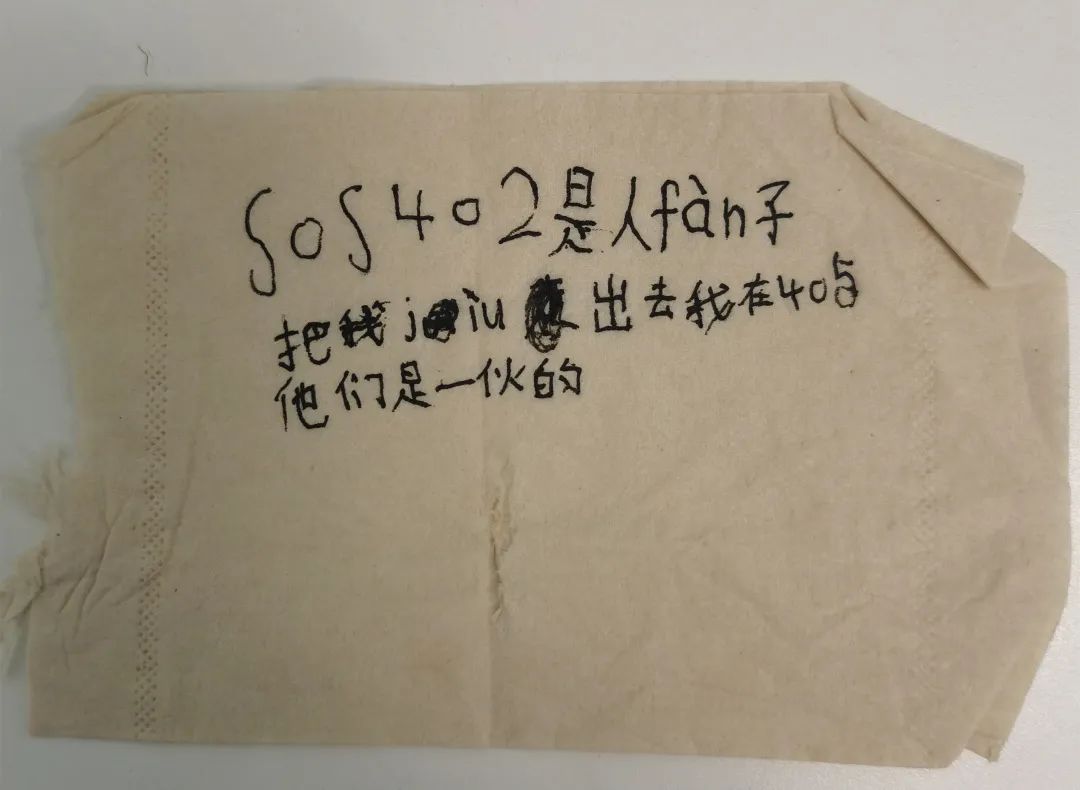 SOS 402是人fàn子
把我jiù出去我在405
他们是一伙的